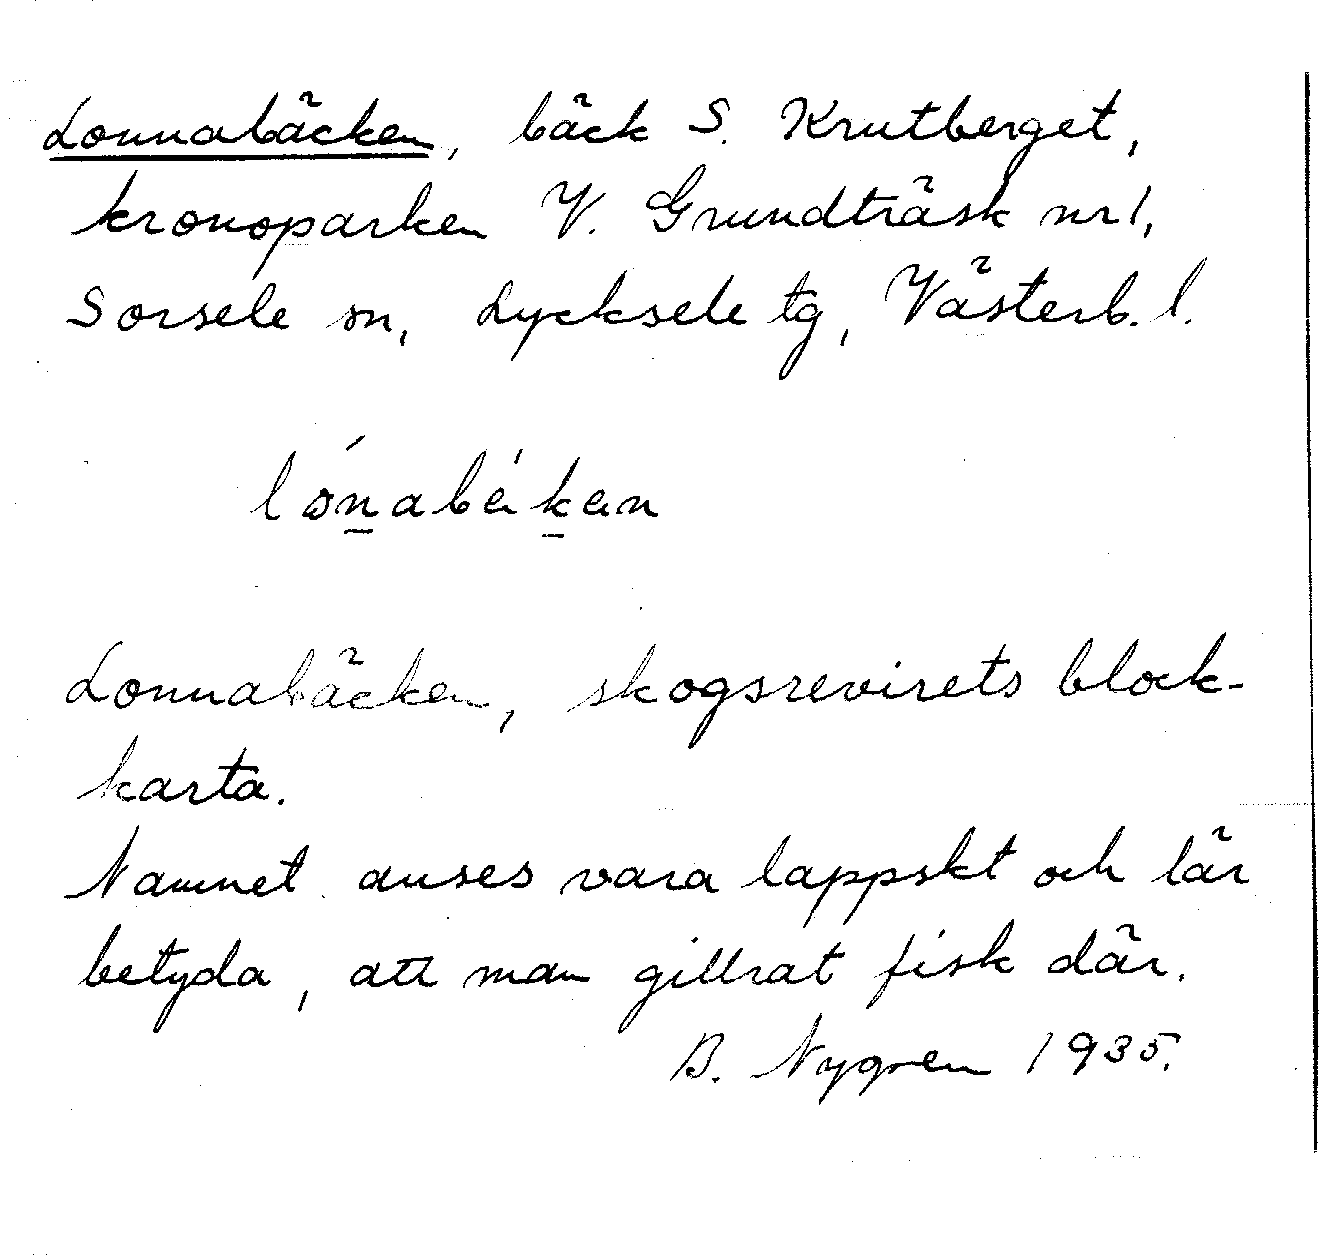 Lonnabäcken, bäck S. Krutberget,
kronoparken V. Grundträsk nr 1,
Sorsele sn, Lycksele tg, Västerb. l.
lónabékan
Lonnabäcken, skogsrevirets block-
karta.
Namnet anses vara lappskt och lär
betyda, att man gillrat fisk där.
B. Nygren 1935.